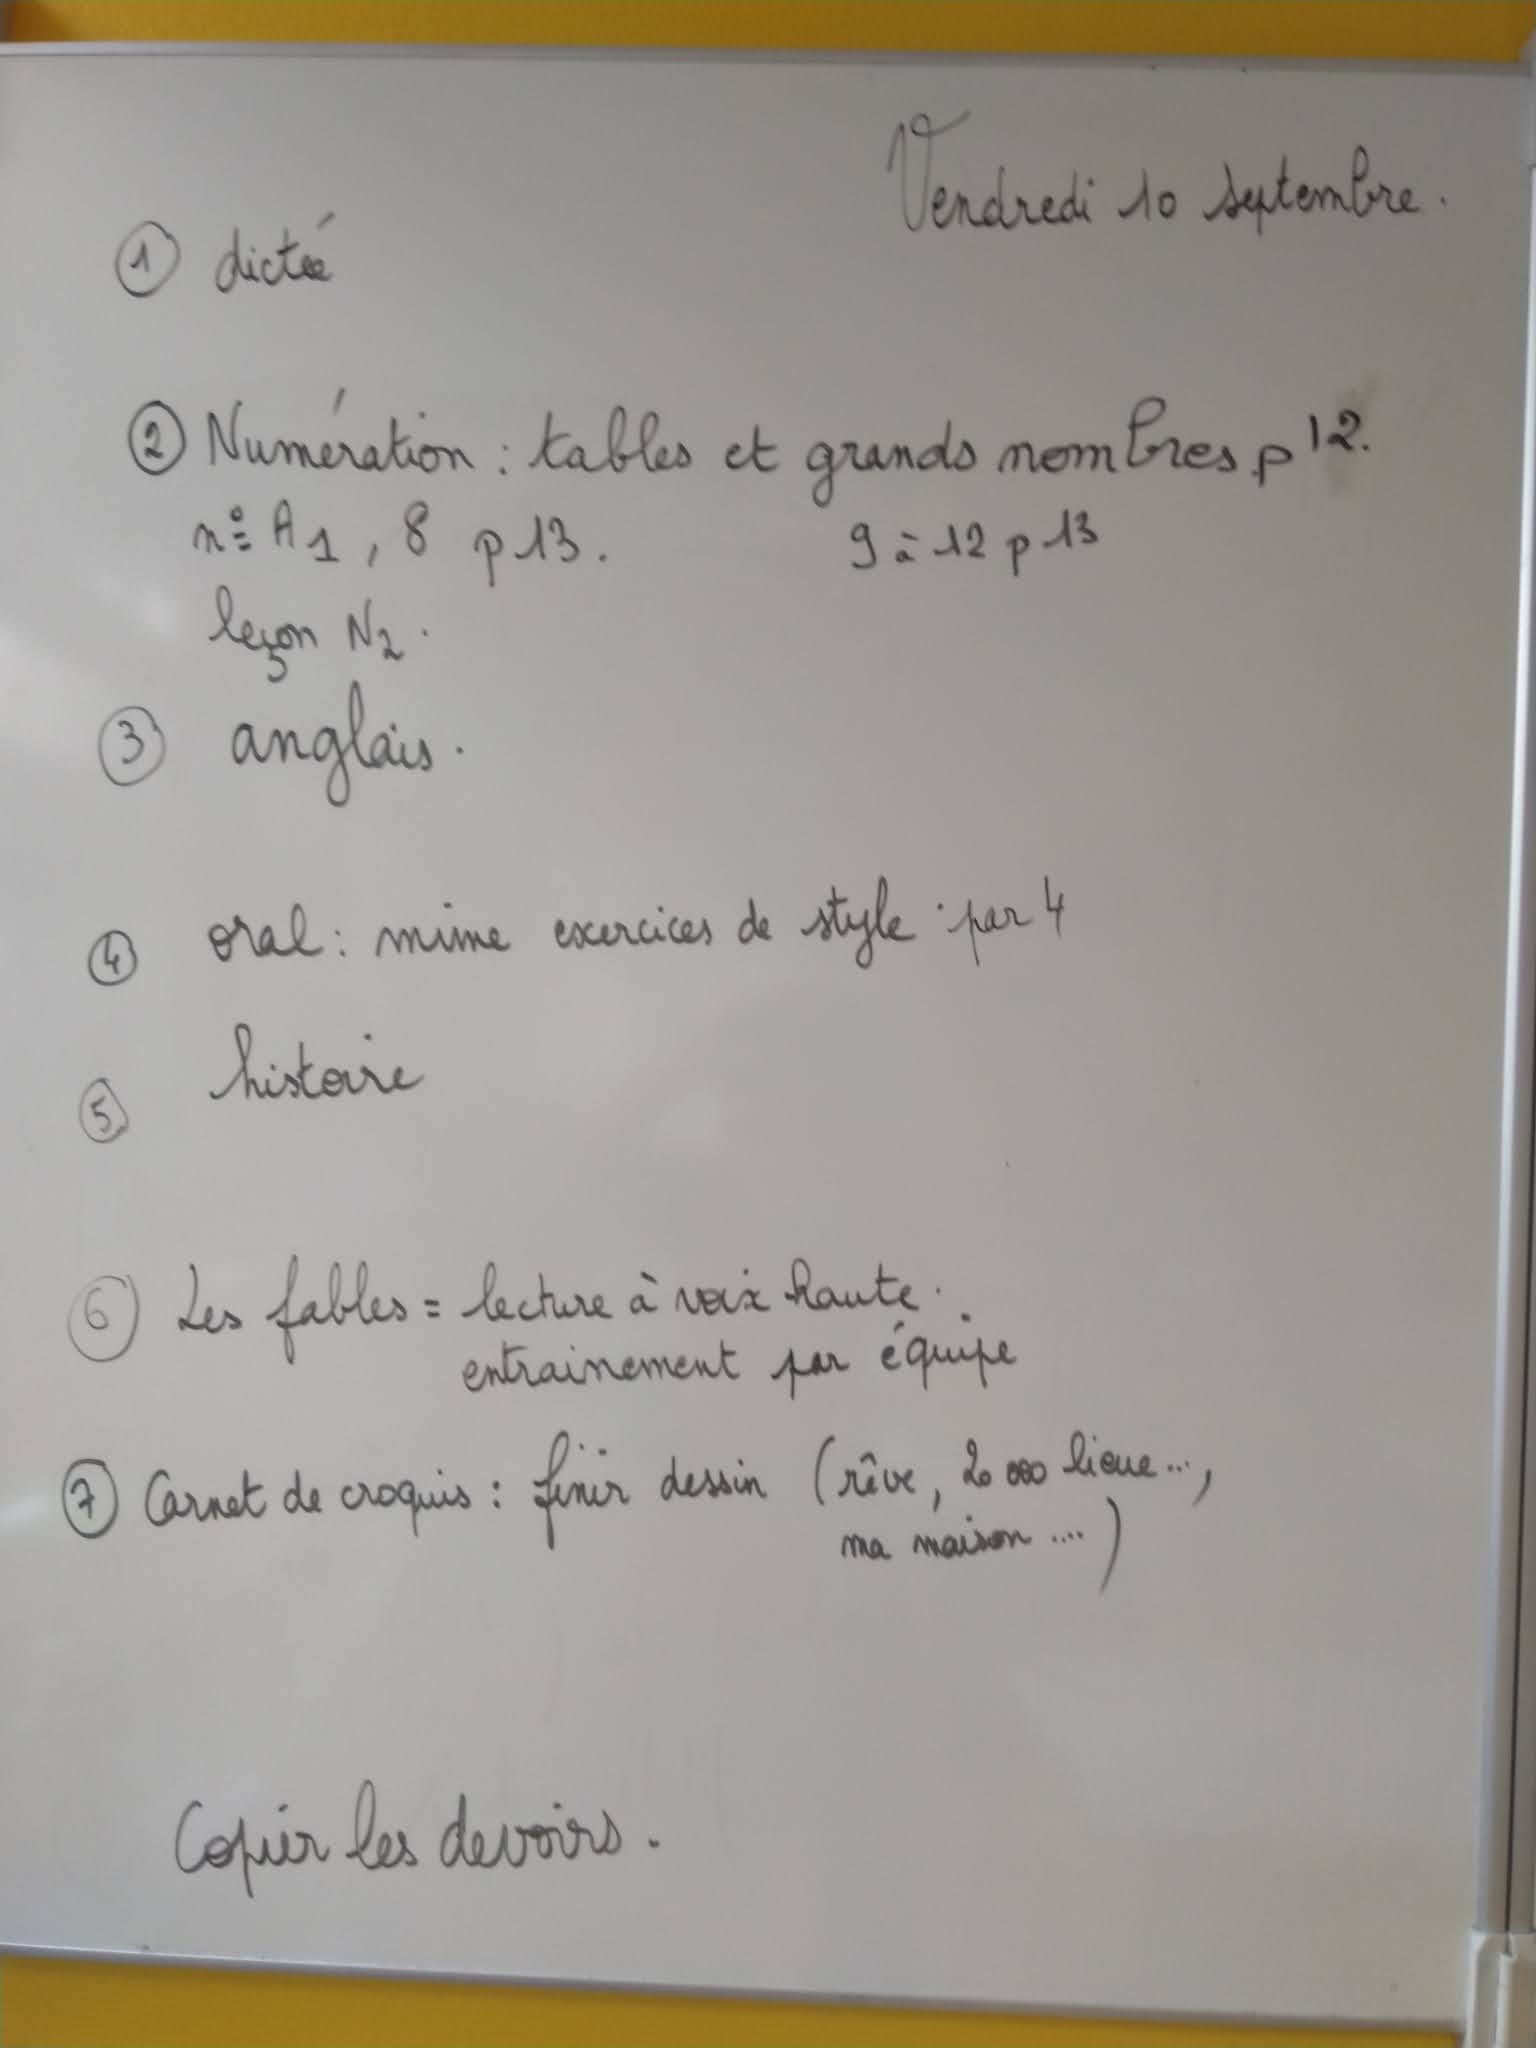 Vendredi 10 septembre.
① dictée
② Numération : tables et grands nombres p 12.
n° A1, 8 p 13. 9 à 12 p 13
leçon N2.
③ anglais.
④ oral : mime exercices de style : par 4
⑤ histoire
⑥ Les fables = lecture à voix haute.
entrainement par équipe
⑦ Carnet de croquis : finir dessin (rêve, 20 000 lieue...,
ma maison ....)
Copier les devoirs.